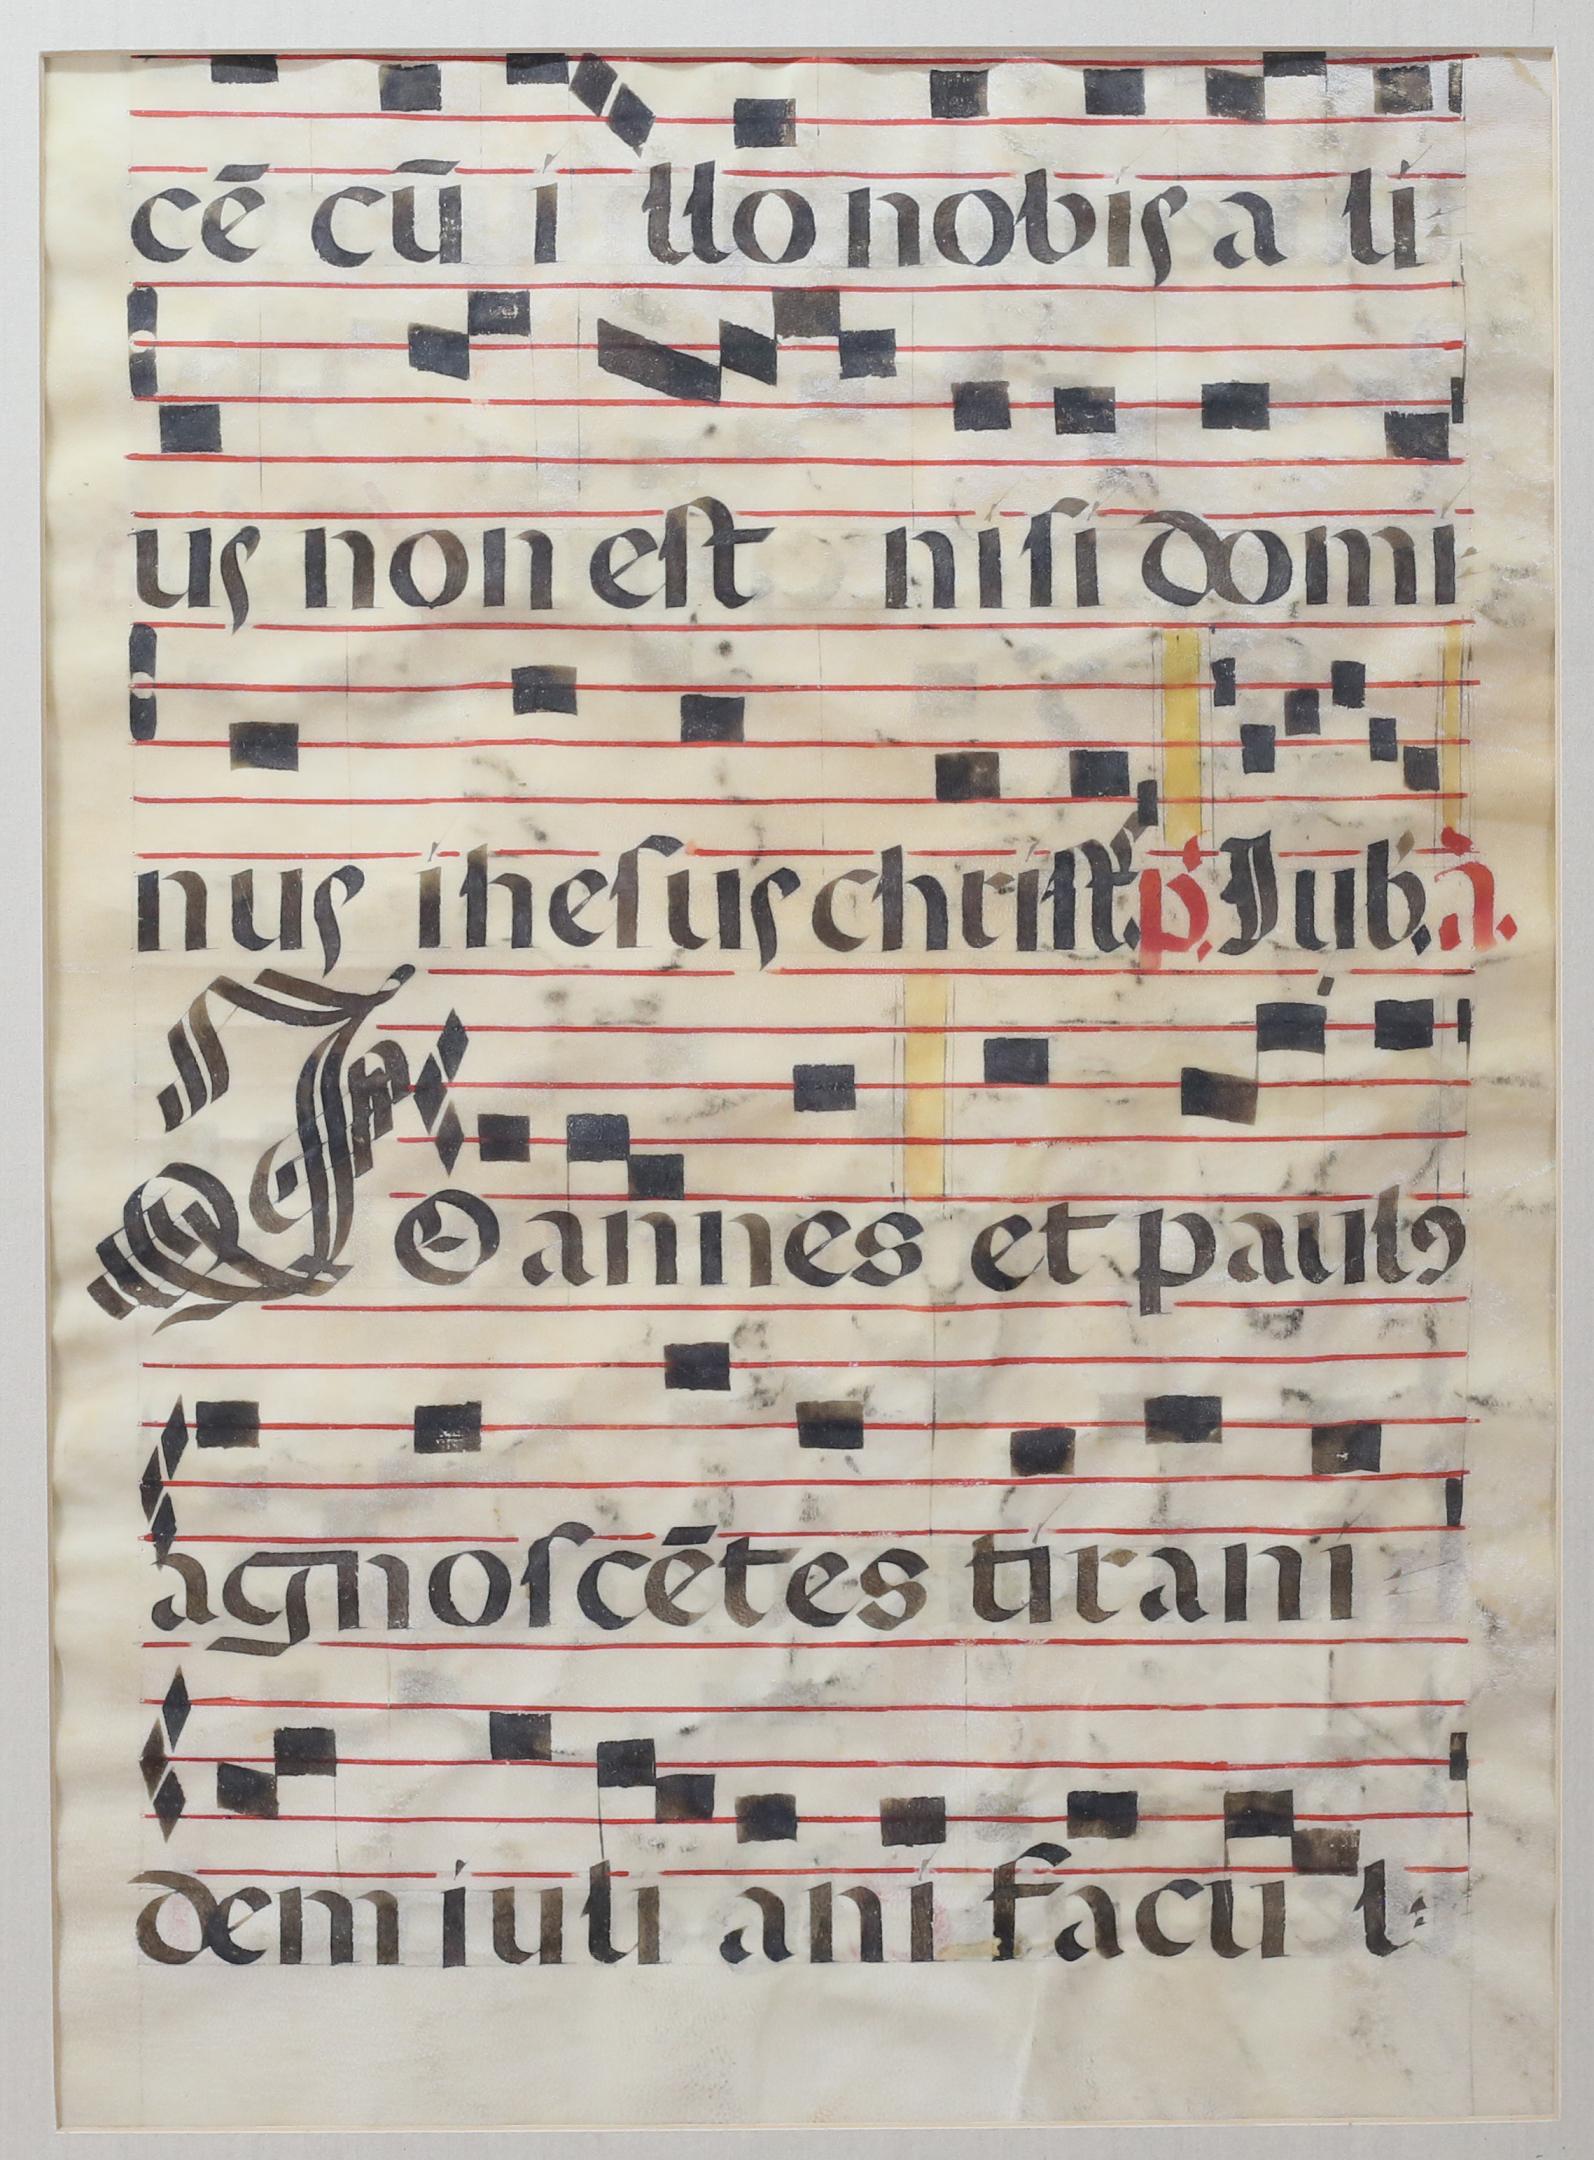 cē cū i llo nobis a li
us non est nisi domi
nus ihesus christ. p. Iub. a.
IOannes et paulꝰ
agnoscētes tirani
dem iuli ani facul